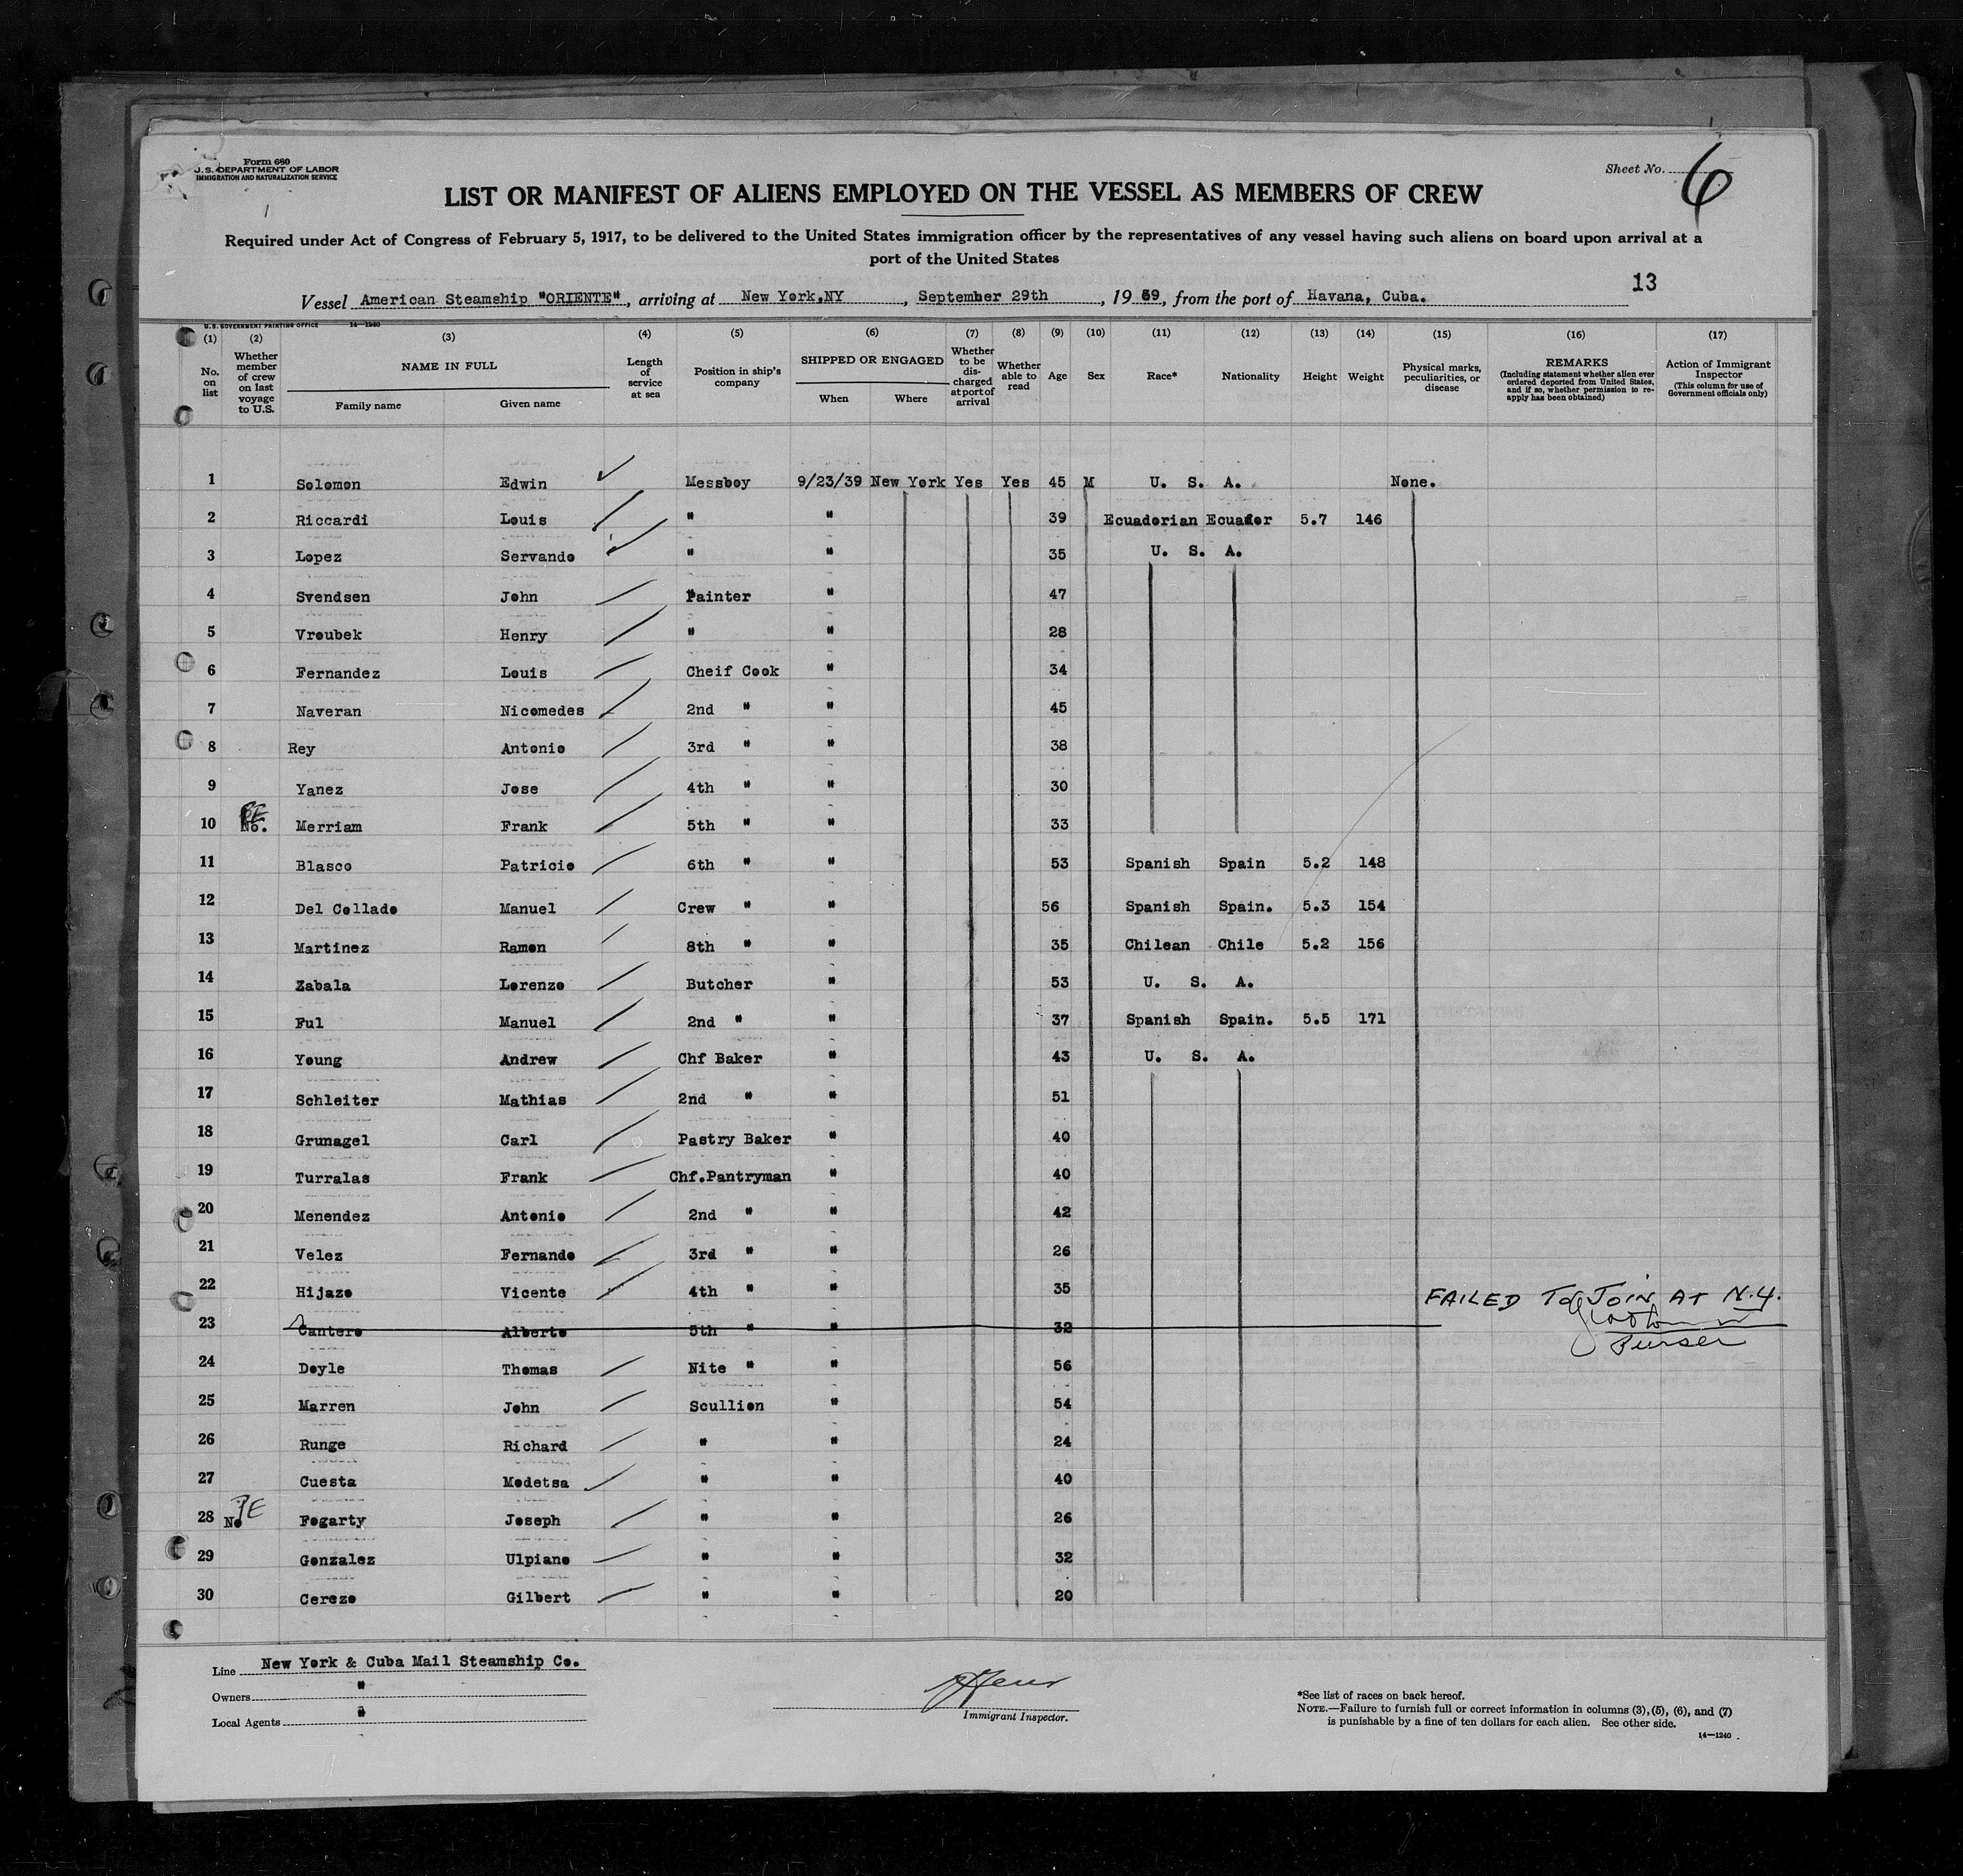 Form 680
U.S. DEPARTMENT OF LABOR
IMMIGRATION AND NATURALIZATION SERVICE
Sheet No. 6
LIST OR MANIFEST OF ALIENS EMPLOYED ON THE VESSEL AS MEMBERS OF CREW
Required under Act of Congress of February 5, 1917, to be delivered to the United States immigration officer by the representatives of any vessel having such aliens on board upon arrival at a
port of the United States
13
Vessel American Steamship "ORIENTE", arriving at New York,NY, September 29th, 1939, from the port of Havana, Cuba.
U.S. GOVERNMENT PRINTING OFFICE 14—1240
(1) (2) (3) (4) (5) (6) (7) (8) (9) (10) (11) (12) (13) (14) (15) (16) (17)
No. on list
Whether member of crew on last voyage to U.S.
NAME IN FULL
Family name Given name
Length of service at sea
Position in ship's company
SHIPPED OR ENGAGED
When Where
Whether to be discharged at port of arrival
Whether able to read
Age
Sex
Race*
Nationality
Height
Weight
Physical marks, peculiarities, or disease
REMARKS
(Including statement whether alien ever ordered deported from United States, and if so, whether permission to reapply has been obtained)
Action of Immigrant Inspector
(This column for use of Government officials only)
1 Solomon Edwin Messboy 9/23/39 New York Yes Yes 45 M U. S. A. None.
2 Riccardi Louis " " 39 Ecuadorian Ecuador 5.7 146
3 Lopez Servando " " 35 U. S. A.
4 Svendsen John Painter " 47
5 Vroubek Henry " " 28
6 Fernandez Louis Cheif Cook " 34
7 Naveran Nicomedes 2nd " " 45
8 Rey Antonio 3rd " " 38
9 Yanez Jose 4th " " 30
10 No. Merriam Frank 5th " " 33
11 Blasco Patricio 6th " " 53 Spanish Spain 5.2 148
12 Del Collado Manuel Crew " " 56 Spanish Spain. 5.3 154
13 Martinez Ramon 8th " " 35 Chilean Chile 5.2 156
14 Zabala Lorenzo Butcher " 53 U. S. A.
15 Ful Manuel 2nd " " 37 Spanish Spain. 5.5 171
16 Young Andrew Chf Baker " 43 U. S. A.
17 Schleiter Mathias 2nd " " 51
18 Grunagel Carl Pastry Baker " 40
19 Turralas Frank Chf.Pantryman " 40
20 Menendez Antonio 2nd " " 42
21 Velez Fernando 3rd " " 26
22 Hijazo Vicente 4th " " 35
FAILED TO JOIN AT N.Y.
23 Cantero Alberto 5th " " 32
Purser
24 Doyle Thomas Nite " " 56
25 Marren John Scullion " 54
26 Runge Richard " " 24
27 Cuesta Modetsa " " 40
28 No Fogarty Joseph " " 26
29 Gonzalez Ulpiano " " 32
30 Cerezo Gilbert " " 20
Line New York & Cuba Mail Steamship Co.
Owners "
Local Agents "
Immigrant Inspector.
*See list of races on back hereof.
NOTE.—Failure to furnish full or correct information in columns (3), (5), (6), and (7)
is punishable by a fine of ten dollars for each alien. See other side.
14—1240